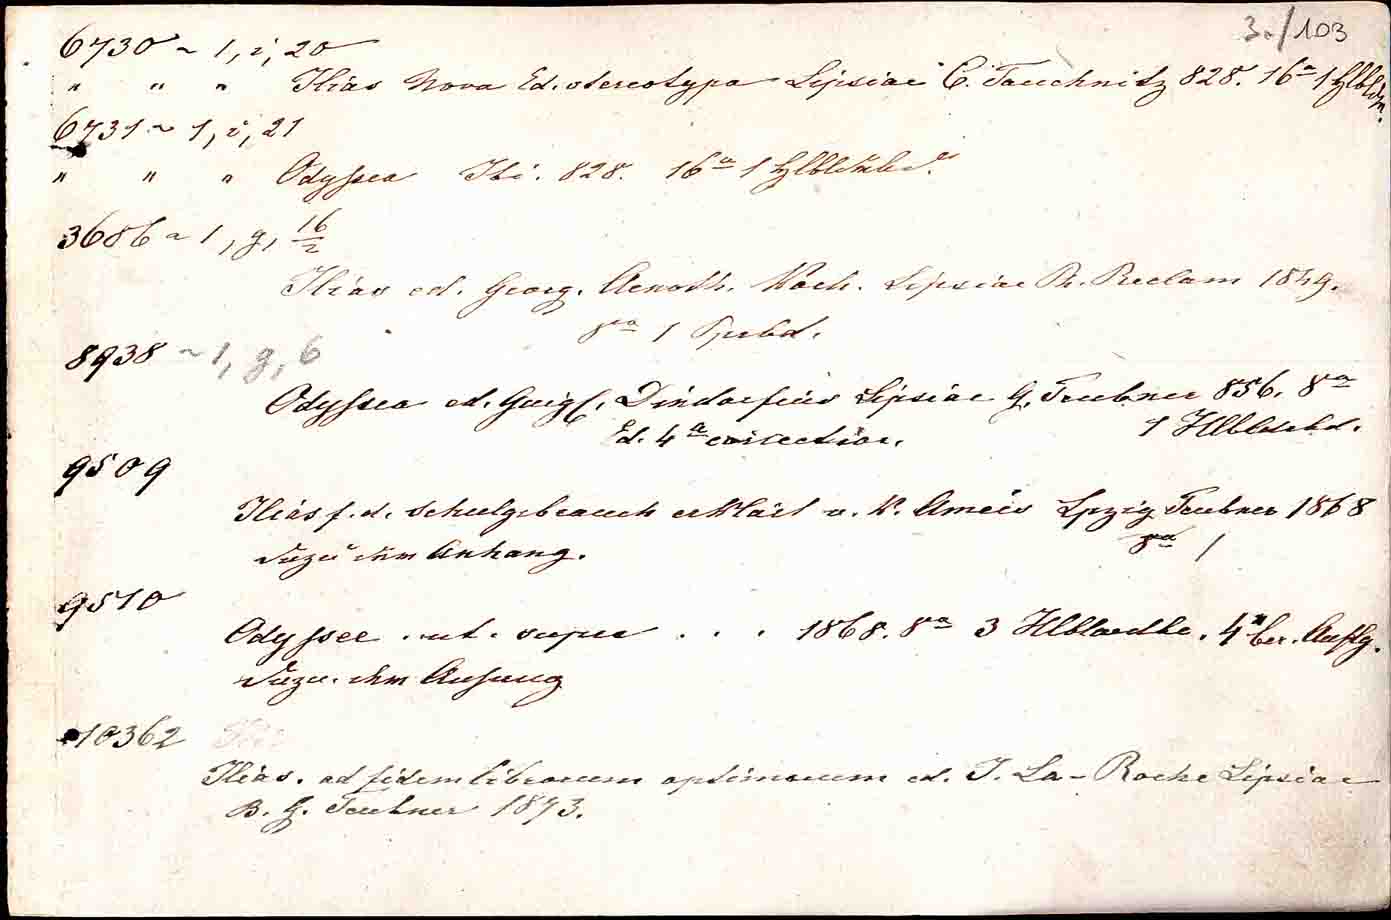 3./103
6730 ~ 1, i, 20
" " " Ilias Nova Ed. stereotypa Lipsiae C. Tauchnitz 828. 16° 1 Hlbldr.
6731 ~ 1, i, 21
" " " Odyssea Ibi. 828. 16° 1
3686 ~ 1, g, 16/2
Ilias ed. Georg. Aenoth. Koch. Lipsiae Ph. Reclam 1849.
8° 1 Ppbd.
8938 ~ 1, g, 6
Odyssea ed. Guigl. Dindorfius Lipsiae G. Teubner 856. 8°
Ed. 4a correctior. 1
9509
Ilias f. d. Schulgebrauch erklärt v. K. Ameis Lpzig Teubner 1868
dazu ihm Anhang. 8° 1
9510
Odyssee . ut . supra . . . 1868. 8° 3 . 4 ber. Auflg.
dazu. ihm Anhang
10362
Ilias. ad fidem librorum optimorum ed. J. La-Roche Lipsiae
B. G. Teubner 1873.